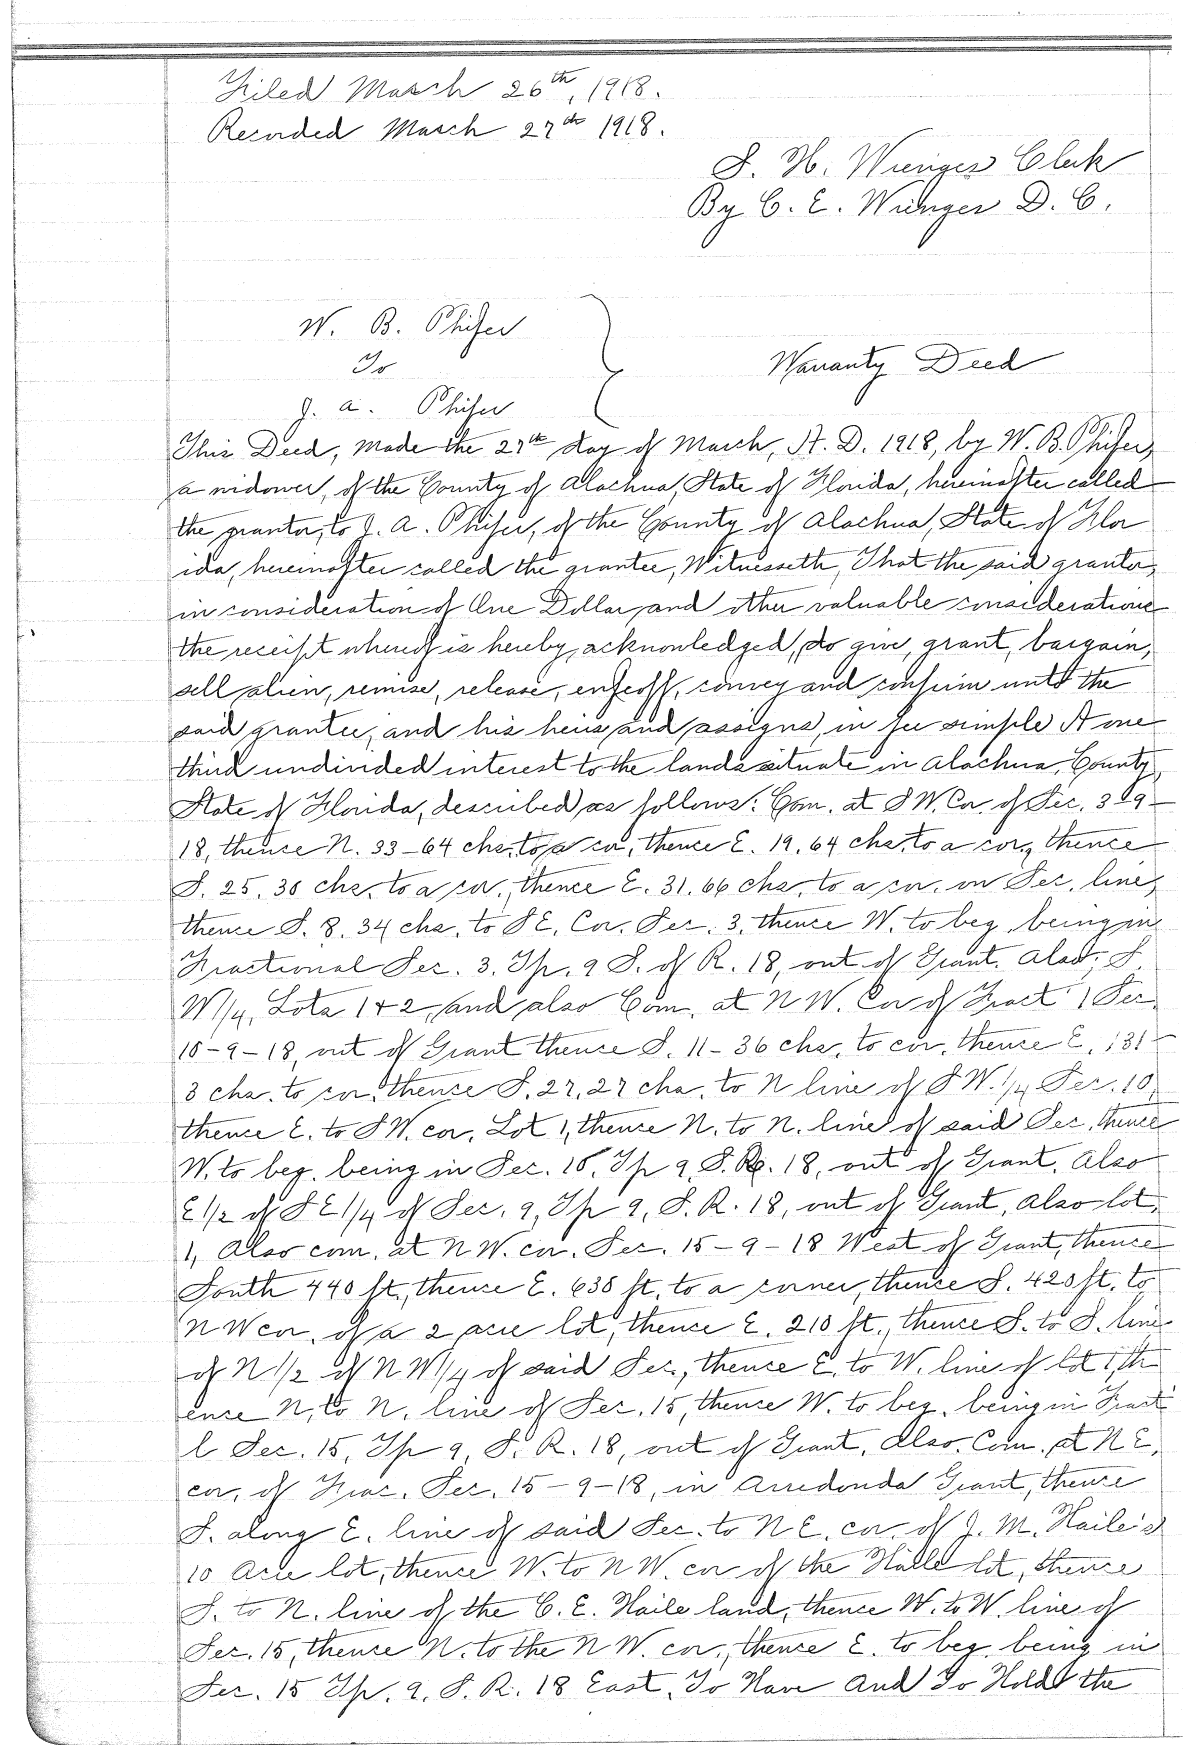 Filed March 26th, 1918.
Recorded March 27th 1918.
S. H. Wienges Clerk
By C. E. Wienges D. C.
W. B. Phifer
To
Warranty Deed
J. A. Phifer
This Deed, Made the 27th day of March, A. D. 1918, by W. B. Phifer,
a widower, of the County of Alachua, State of Florida, hereinafter called
the grantor, to J. A. Phifer, of the County of Alachua, State of Flor
ida, hereinafter called the grantee, Witnesseth, That the said grantor,
in consideration of One Dollar, and other valuable considerations
the receipt whereof is hereby acknowledged, do give, grant, bargain,
sell alien, remise, release, enfeoff, convey and confirm unto the
said grantee, and his heirs and assigns, in fee simple A one
third undivided interest to the lands situate in Alachua, County,
State of Florida, described as follows: Com. at S W. Cor. of Sec. 3-9-
18, thence N. 33-64 chs. to a cor, thence E. 19.64 chs. to a cor., thence
S. 25.30 chs. to a cor., thence E. 31.66 chs. to a cor. on Sec. line,
thence S. 8.34 chs. to S E. Cor. Sec. 3, thence W. to beg. being in
Fractional Sec. 3. Tp. 9 S. of R. 18, out of Grant. Also, S
W 1/4, Lots 1 & 2, and also Com. at N W. Cor of Fract 1 Sec.
10-9-18, out of Grant thence S. 11-36 chs. to cor. thence E. 131-
3 chs. to cor. thence S. 27.27 chs. to N line of S W. 1/4 Sec. 10,
thence E. to S W. cor. Lot 1, thence N. to N. line of said Sec. thence
W. to beg. being in Sec. 10, Tp 9, S. R. 18, out of Grant. Also
E 1/2 of S E 1/4 of Sec. 9, Tp 9, S. R. 18, out of Grant, Also lot,
1, Also com. at N W. cor. Sec. 15-9-18 West of Grant, thence
South 440 ft., thence E. 630 ft. to a corner, thence S. 420 ft. to
N W cor. of a 2 acre lot, thence E. 210 ft., thence S. to S. line
of N 1/2 of N W 1/4 of said Sec., thence E. to W. line of lot 1, th
ence N. to N. line of Sec. 15, thence W. to beg. being in Fract'
l Sec. 15, Tp 9, S. R. 18, out of Grant, Also, Com. at N E,
cor. of Frac. Sec. 15-9-18, in Arredonda Grant, thence
S. along E. line of said Sec. to N E. cor. of J. M. Haile's
10 Acre lot, thence W. to N W. cor of the Haile lot, thence
S. to N. line of the C. E. Haile land, thence W. to W. line of
Sec. 15, thence N. to the N W. cor., thence E. to beg. being in
Sec. 15 Tp. 9, S. R. 18 East. To Have And To Hold the